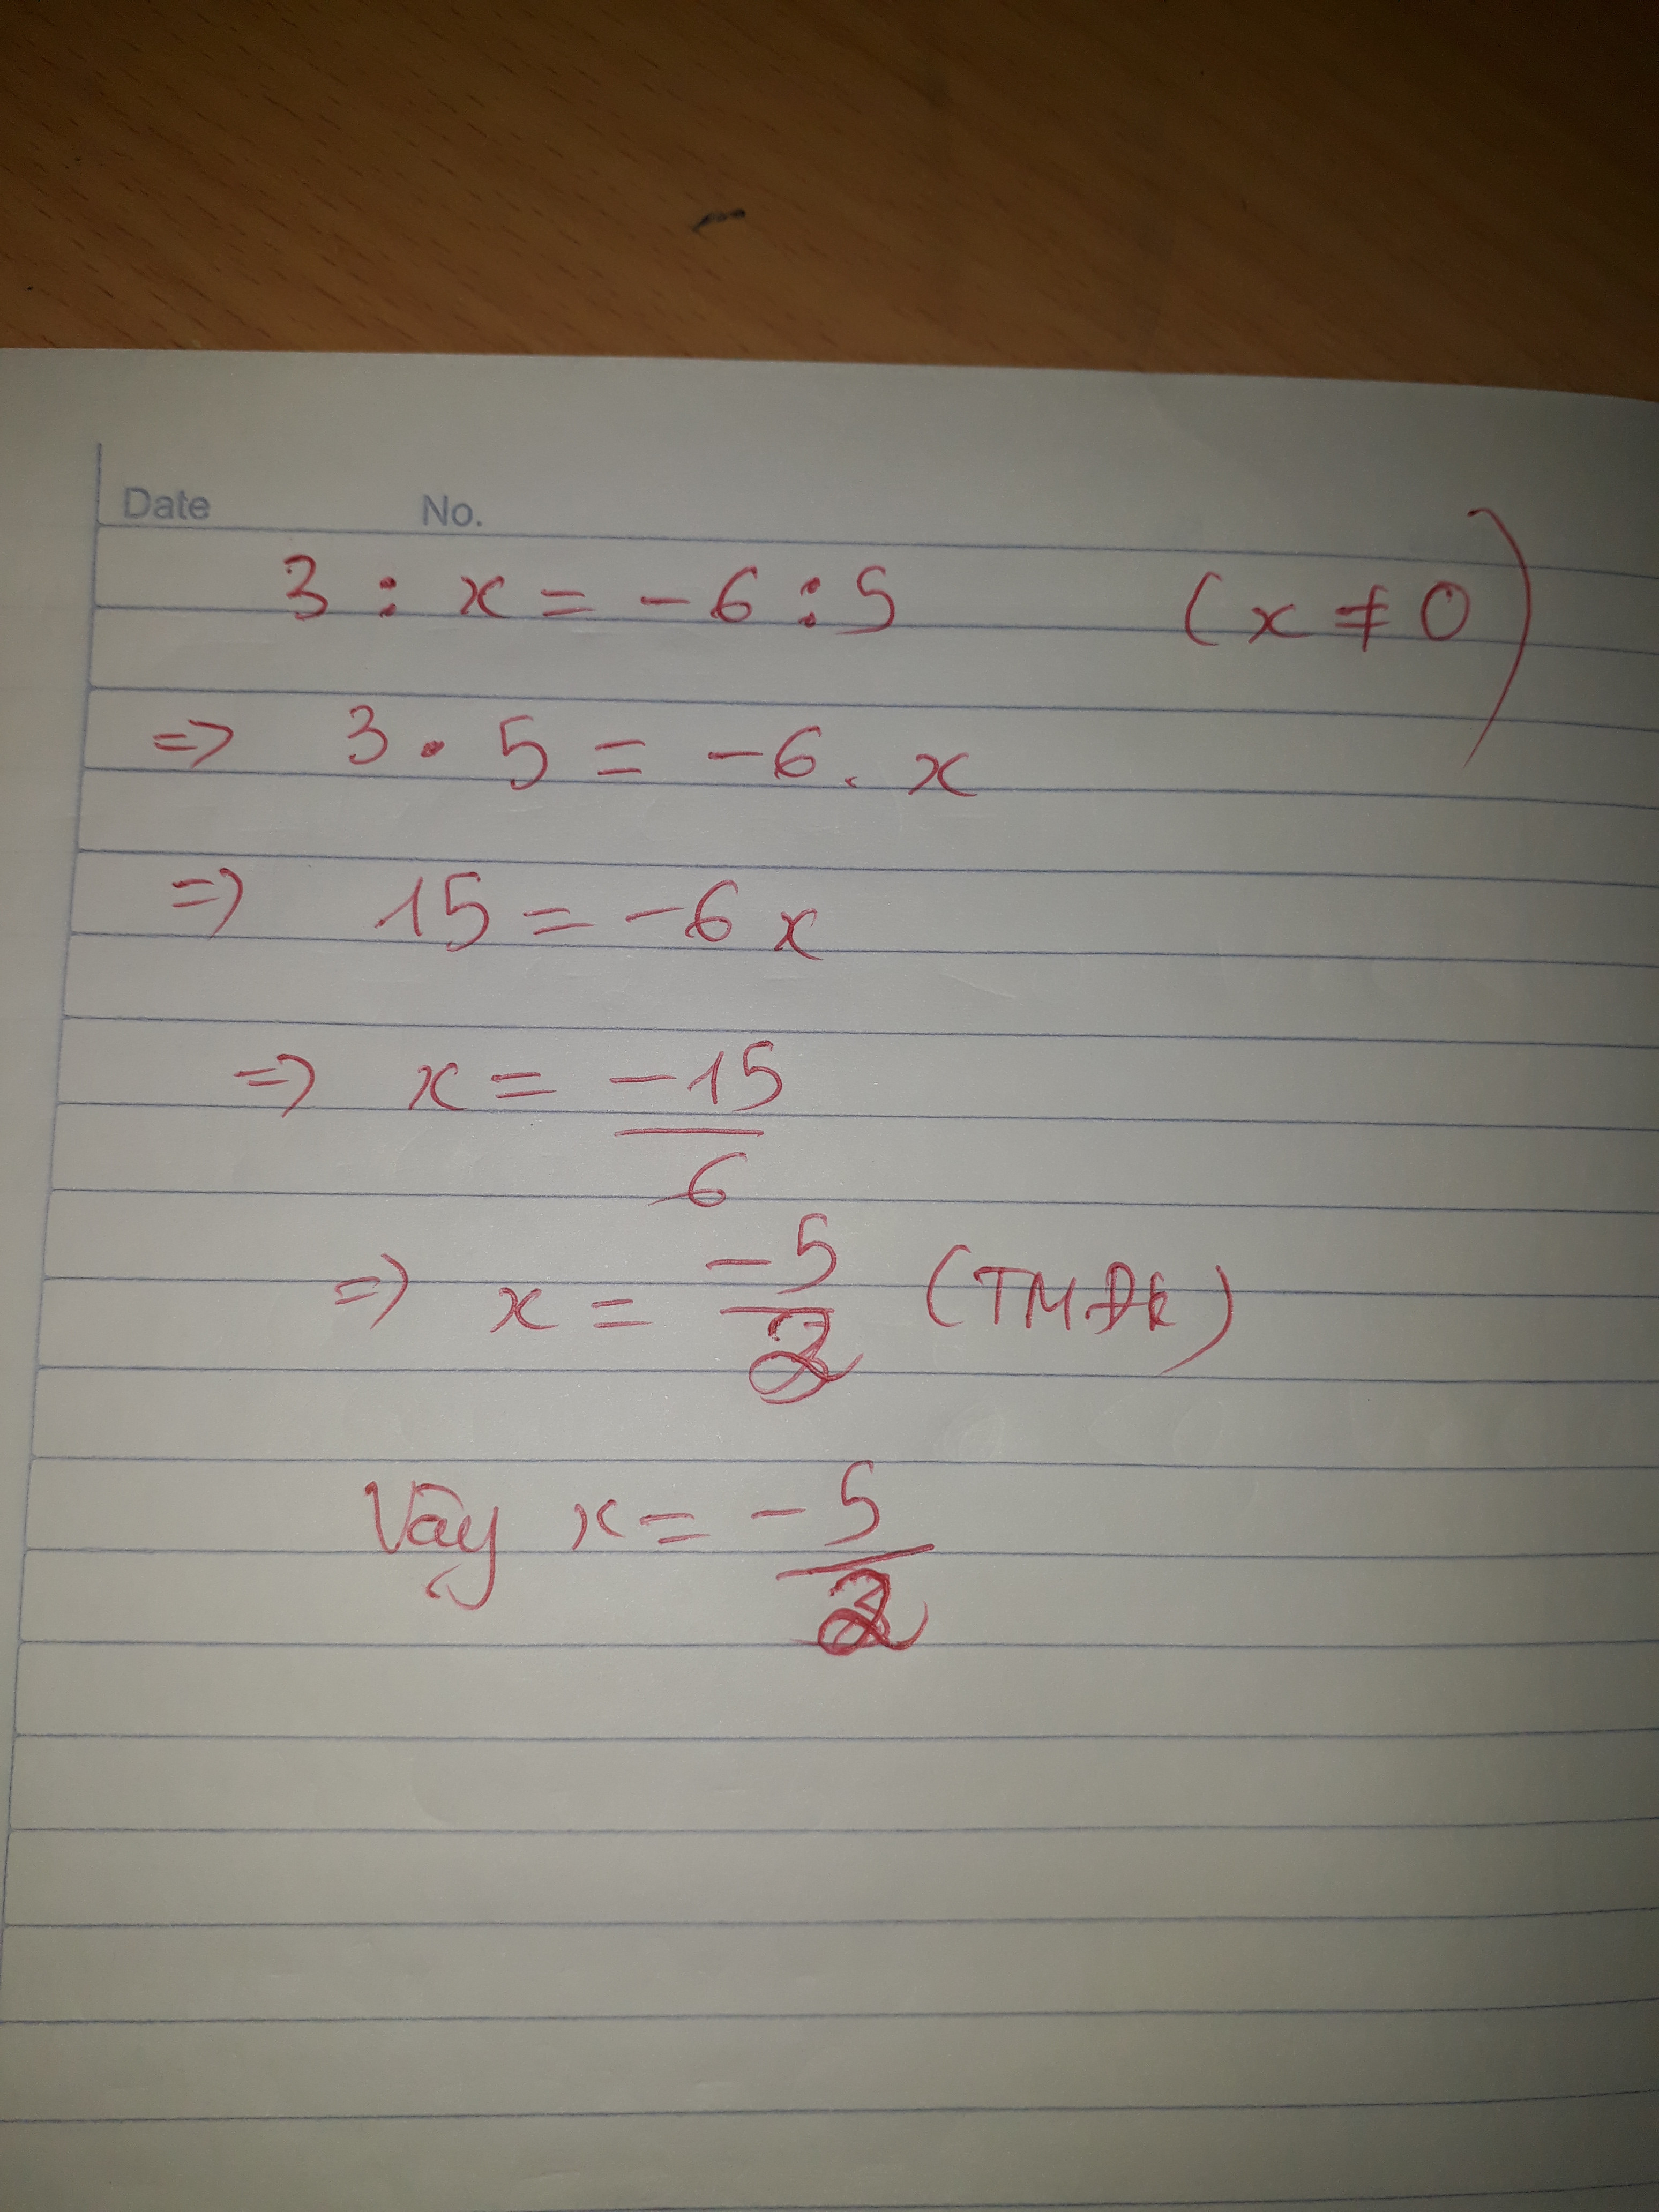 Date No.
3 : x = -6 : 5 (x ≠ 0)
=> 3 . 5 = -6 . x
=> 15 = -6x
=> x = -15/6
=> x = -5/2 (TMĐK)
Vậy x = -5/2